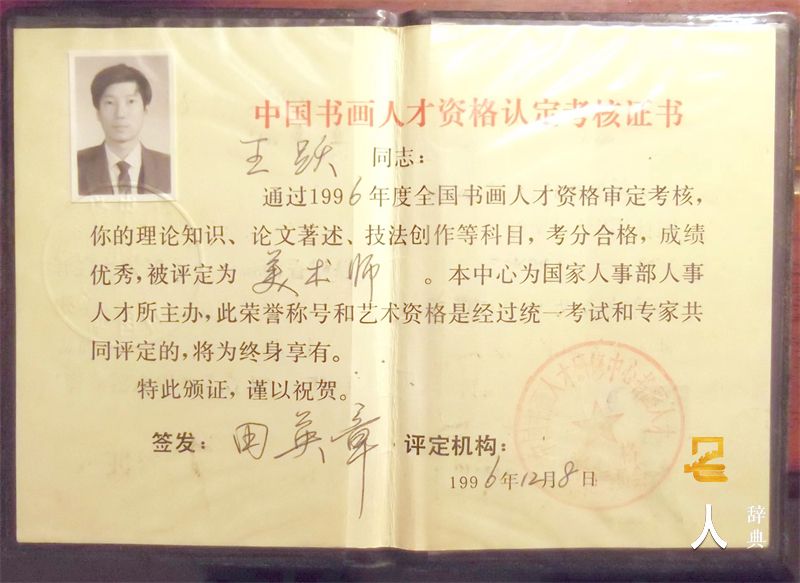 中国书画人才资格认定考核证书
王跃 同志：
通过1996年度全国书画人才资格审定考核，
你的理论知识、论文著述、技法创作等科目，考分合格，成绩
优秀，被评定为 美术师 。本中心为国家人事部人事
人才所主办，此荣誉称号和艺术资格是经过统一考试和专家共
同评定的，将为终身享有。
特此颁证，谨以祝贺。
签发：田英章 评定机构：
1996年12月8日
名人辞典